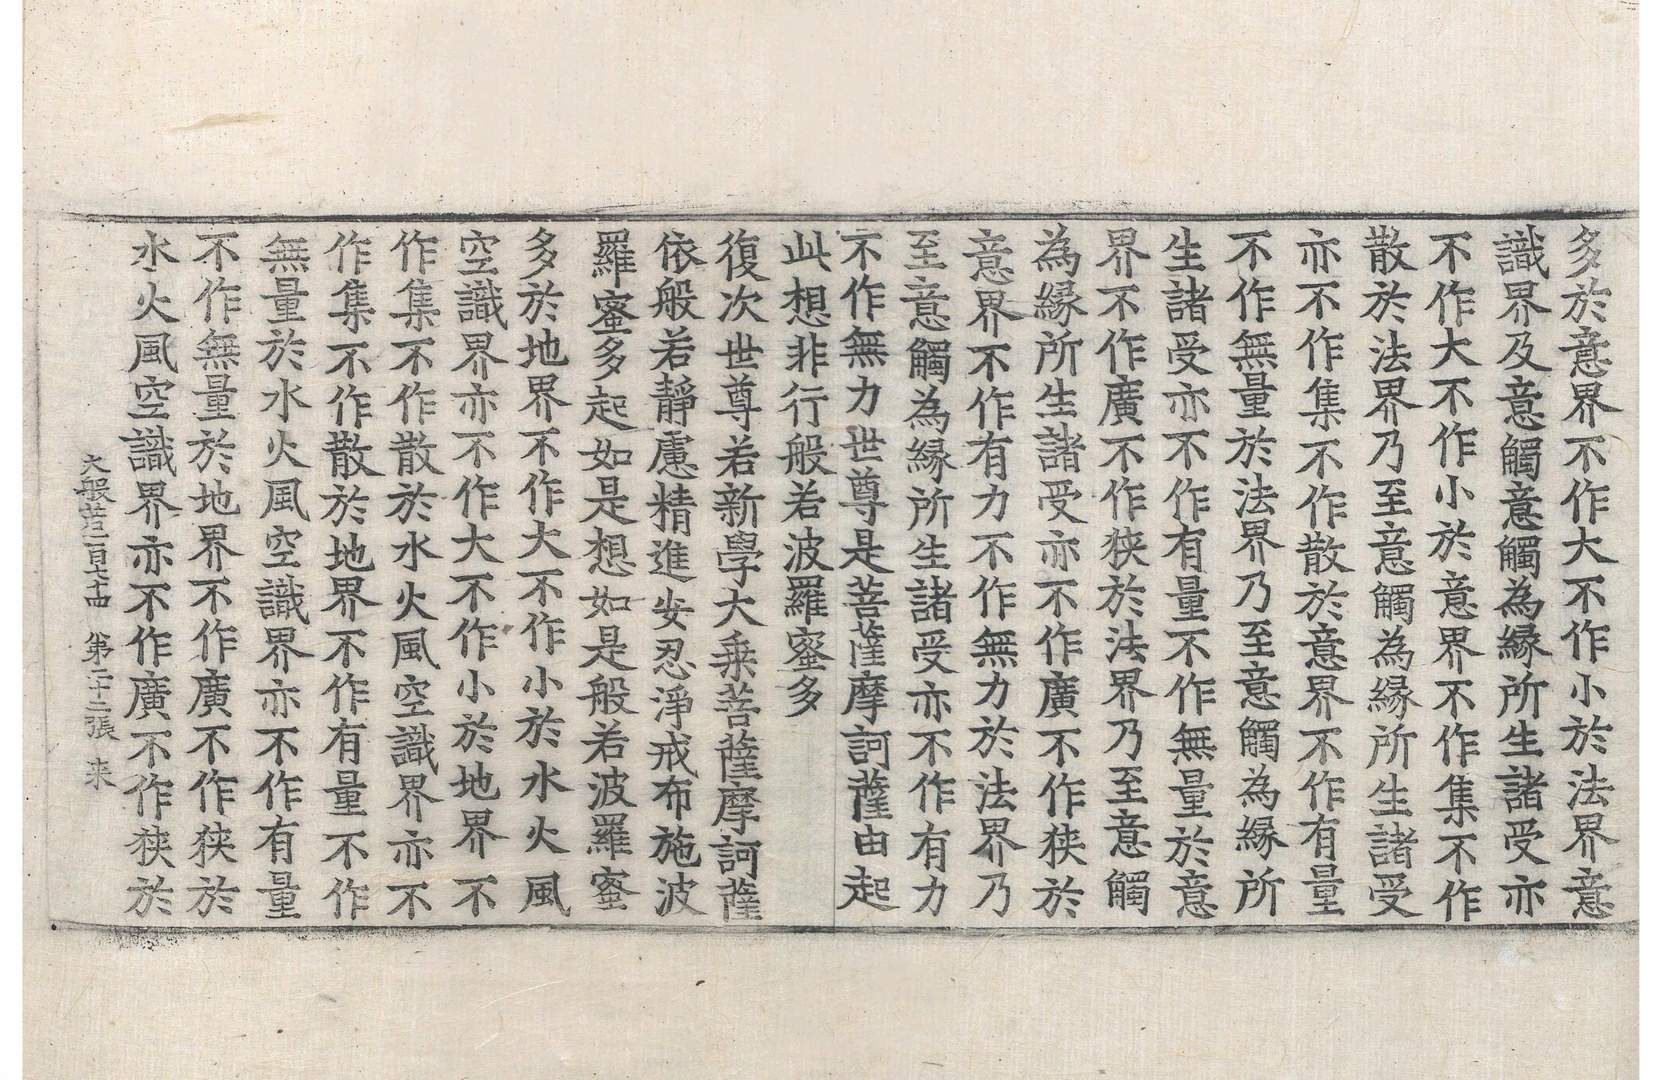 多於意界不作大不作小於法界意
識界及意觸意觸為縁所生諸受亦
不作大不作小於意界不作集不作
散於法界乃至意觸為縁所生諸受
亦不作集不作散於意界不作有量
不作無量於法界乃至意觸為縁所
生諸受亦不作有量不作無量於意
界不作廣不作狹於法界乃至意觸
為縁所生諸受亦不作廣不作狹於
意界不作有力不作無力於法界乃
至意觸為縁所生諸受亦不作有力
不作無力世尊是菩薩摩訶薩由起
此想非行般若波羅蜜多
復次世尊若新學大乗菩薩摩訶薩
依般若靜慮精進安忍淨戒布施波
羅蜜多起如是想如是般若波羅蜜
多於地界不作大不作小於水火風
空識界亦不作大不作小於地界不
作集不作散於水火風空識界亦不
作集不作散於地界不作有量不作
無量於水火風空識界亦不作有量
不作無量於地界不作廣不作狹於
水火風空識界亦不作廣不作狹於
大般若一百七十四 第二十二張 来